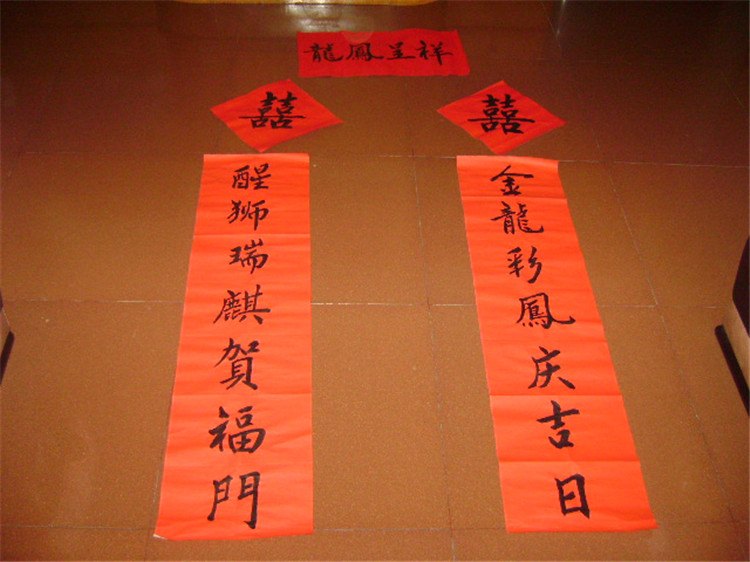 龍鳳呈祥
囍
囍
金龍彩鳳庆吉日
醒狮瑞麒賀福門